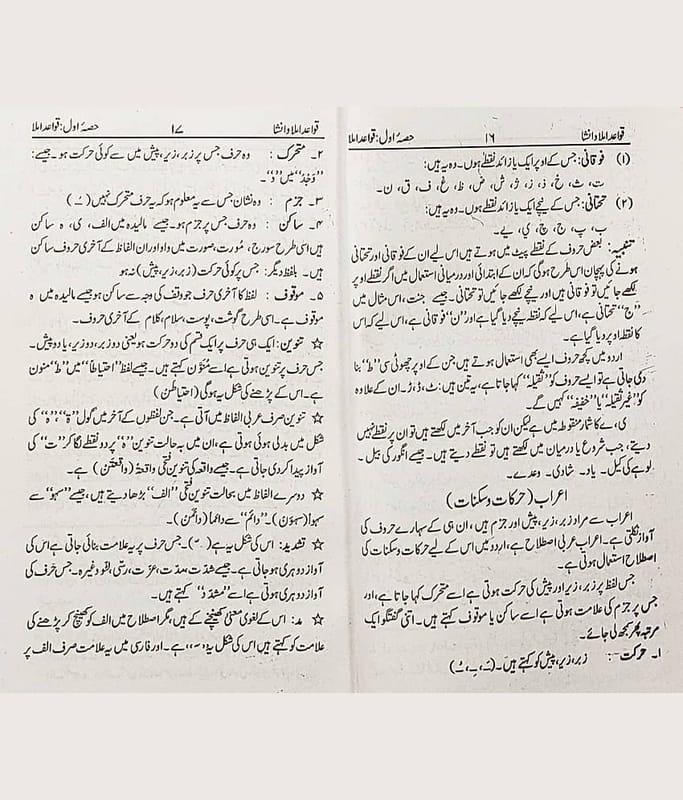 قواعد املا و انشا ۱۶ حصۂ اول: قواعد املا
(۱) فوقانی: جس کے اوپر ایک یا زائد نقطے ہوں۔ وہ یہ ہیں:
ت، ث، خ، ذ، ز، ژ، ش، ض، ظ، غ، ف، ق، ن۔
(۲) تحتانی: جس کے نیچے ایک یا زائد نقطے ہوں۔ وہ یہ ہیں:
ب، پ، ج، چ، ی، یے۔
تنبیہ: بعض حروف کے نقطے پیٹ میں ہوتے ہیں اس لیے ان کے فوقانی اور تحتانی
ہونے کی پہچان اس طرح ہوگی کہ ان کے ابتدائی اور درمیانی استعمال میں اگر نقطے اوپر
لکھے جائیں تو فوقانی ہیں اور نیچے لکھے جائیں تو تحتانی۔ جیسے جنت، اس مثال میں
”ج“ تحتانی ہے، اس لیے کہ نقطہ نیچے دیا گیا ہے اور ”ن“ فوقانی ہے، اس لیے کہ اس
کا نقطہ اوپر دیا گیا ہے۔
اردو میں کچھ حروف ایسے بھی استعمال ہوتے ہیں جن کے اوپر چھوٹی سی ”ط“ بنا
دی جاتی ہے تو ایسے حروف کو ”ثقیلہ“ کہا جاتا ہے، یہ تین ہیں: ٹ، ڈ، ڑ۔ ان کے علاوہ
کو ”غیر ثقیلہ“ یا ”خفیفہ“ کہیں گے۔
ی، ے کا شمار منقوطہ میں ہے لیکن ان کو جب آخر میں لکھتے ہیں تو ان پر نقطے نہیں
دیتے، جب شروع یا درمیان میں لکھتے ہیں تو نقطے دیتے ہیں۔ جیسے انگور کی بیل۔
لوہے کی کیل۔ یاد۔ شادی۔ وعدے۔
اعراب (حرکات و سکنات)
اعراب سے مراد زبر، زیر، پیش اور جزم ہیں، ان ہی کے سہارے حروف کی
آواز نکلتی ہے۔ اعراب عربی اصطلاح ہے، اردو میں اس کے لیے حرکات و سکنات کی
اصطلاح استعمال ہوتی ہے۔
جس لفظ پر زبر، زیر اور پیش کی حرکت ہوتی ہے اسے متحرک کہا جاتا ہے، اور
جس پر جزم کی علامت ہوتی ہے اسے ساکن یا موقوف کہتے ہیں۔ اتنی گفتگو ایک
مرتبہ پھر سمجھ لی جائے۔
۱۔ حرکت: زبر، زیر، پیش کو کہتے ہیں۔ (ـَ، ـِ، ـُ)
قواعد املا و انشا ۱۷ حصۂ اول: قواعد املا
۲۔ متحرک: وہ حرف جس پر زبر، زیر، پیش میں سے کوئی حرکت ہو۔ جیسے:
”وَجَدَ“ میں ”دَ“۔
۳۔ جزم: وہ نشان جس سے یہ معلوم ہو کہ یہ حرف متحرک نہیں (ـْ)
۴۔ ساکن: وہ حرف جس پر جزم ہو۔ جیسے مالیدہ میں الف، ی، ہ ساکن
ہیں اسی طرح سورج، مُورت، صورت میں واو اور ان الفاظ کے آخری حروف ساکن
ہیں۔ بلفظ دیگر: جس پر کوئی حرکت (زبر، زیر، پیش) نہ ہو
۵۔ موقوف: لفظ کا آخری حرف جو وقف کی وجہ سے ساکن ہو جیسے مالیدہ میں ہ
موقوف ہے۔ اسی طرح گوشت، پوست، سلام، کلام کے آخری حروف۔
☆ تنوین: ایک ہی حرف پر ایک قسم کی دو حرکت ہو یعنی دو زبر، دو زیر، یا دو پیش۔
جس حرف پر تنوین ہوتی ہے اسے مُنَوَّن کہتے ہیں۔ جیسے لفظ ”احتیاطاً“ میں ”ط“ منون
ہے۔ اس کے پڑھنے کی شکل یہ ہوگی (احتیاطن)
☆ تنوین صرف عربی الفاظ میں آتی ہے۔ جن لفظوں کے آخر میں گول ”ۃ“، ”ہ“ کی
شکل میں بدلی ہوئی ہوتی ہے، ان میں بہ حالت تنوین ”ہ“ پر دو نقطے لگا کر ”ت“ کی
آواز پیدا کر دی جاتی ہے۔ جیسے واقعہ کی تنوین فتحی واقعۃً (واقعتن) ہے۔
☆ دوسرے الفاظ میں بحالت تنوین فتحی ”الف“ بڑھا دیتے ہیں، جیسے ”سہو“ سے
سہواً (سہون)۔ ”دائم“ سے دائماً (دائمن)۔
☆ تشدید: اس کی شکل یہ ہے (ـّ)۔ جس حرف پر یہ علامت بنائی جاتی ہے اس کی
آواز دوہری ہو جاتی ہے۔ جیسے شدّت، مدّت، عزّت، رسّی، الّو وغیرہ۔ جس حرف کی
آواز دوہری ہوتی ہے اسے ”مشدّد“ کہتے ہیں۔
☆ مد: اس کے لغوی معنی کھینچنے کے ہیں، مگر اصطلاح میں الف کو کھینچ کر پڑھنے کی
علامت کو کہتے ہیں اس کی شکل یہ ”ٓ“ ہے۔ اور فارسی میں یہ علامت صرف الف پر